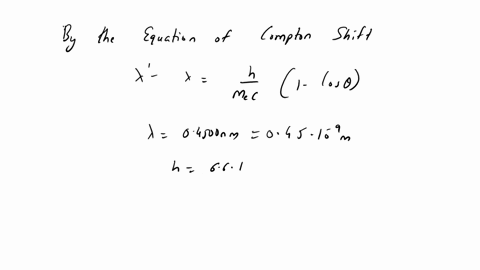 By the Equation of Compton Shift
λ' - λ = h / mec (1 - Cosθ)
λ = 0.4500nm = 0.45.10⁻⁹m
h = 6.6.1